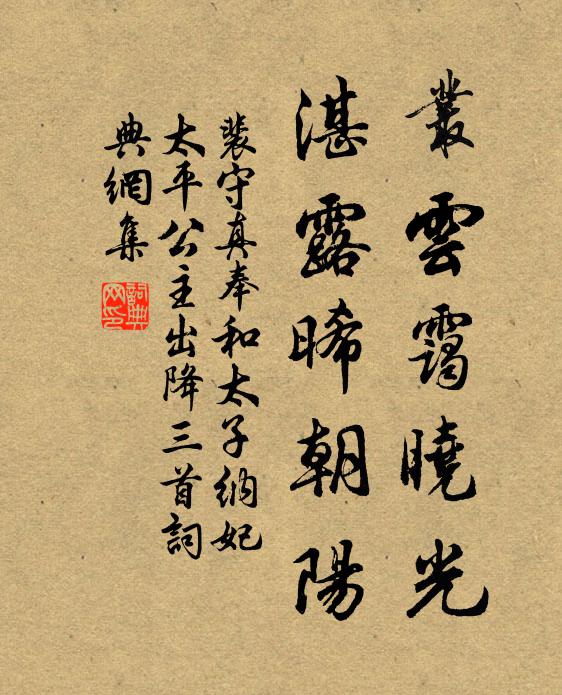 叢雲靄曉光
湛露晞朝陽
裴守真奉和太子納妃
太平公主出降三首詞
典網集
詞典網印